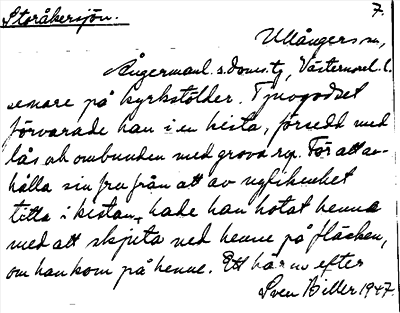 Storåkersjön.
7.
Ullångers sn,
Ångermanl. s. doms. tj, Västernorrl. l.
senare på kyrkstölder. Tjuvgodset
förvarade han i en kista, försedd med
lås och ombunden med grova rep. För att av-
hålla sin fru från att av nyfikenhet
titta i kistan, hade han hotat henne
med att skjuta ned henne på fläcken,
om han kom på henne. Ett här efter
Sven Biller 1947.